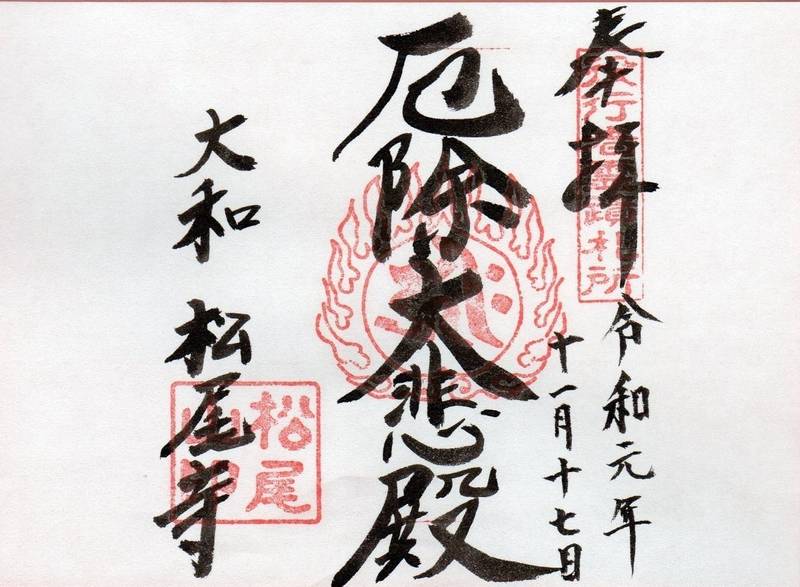 奉拝
令和元年
十一月十七日
厄除大悲殿
大和 松尾寺
松尾